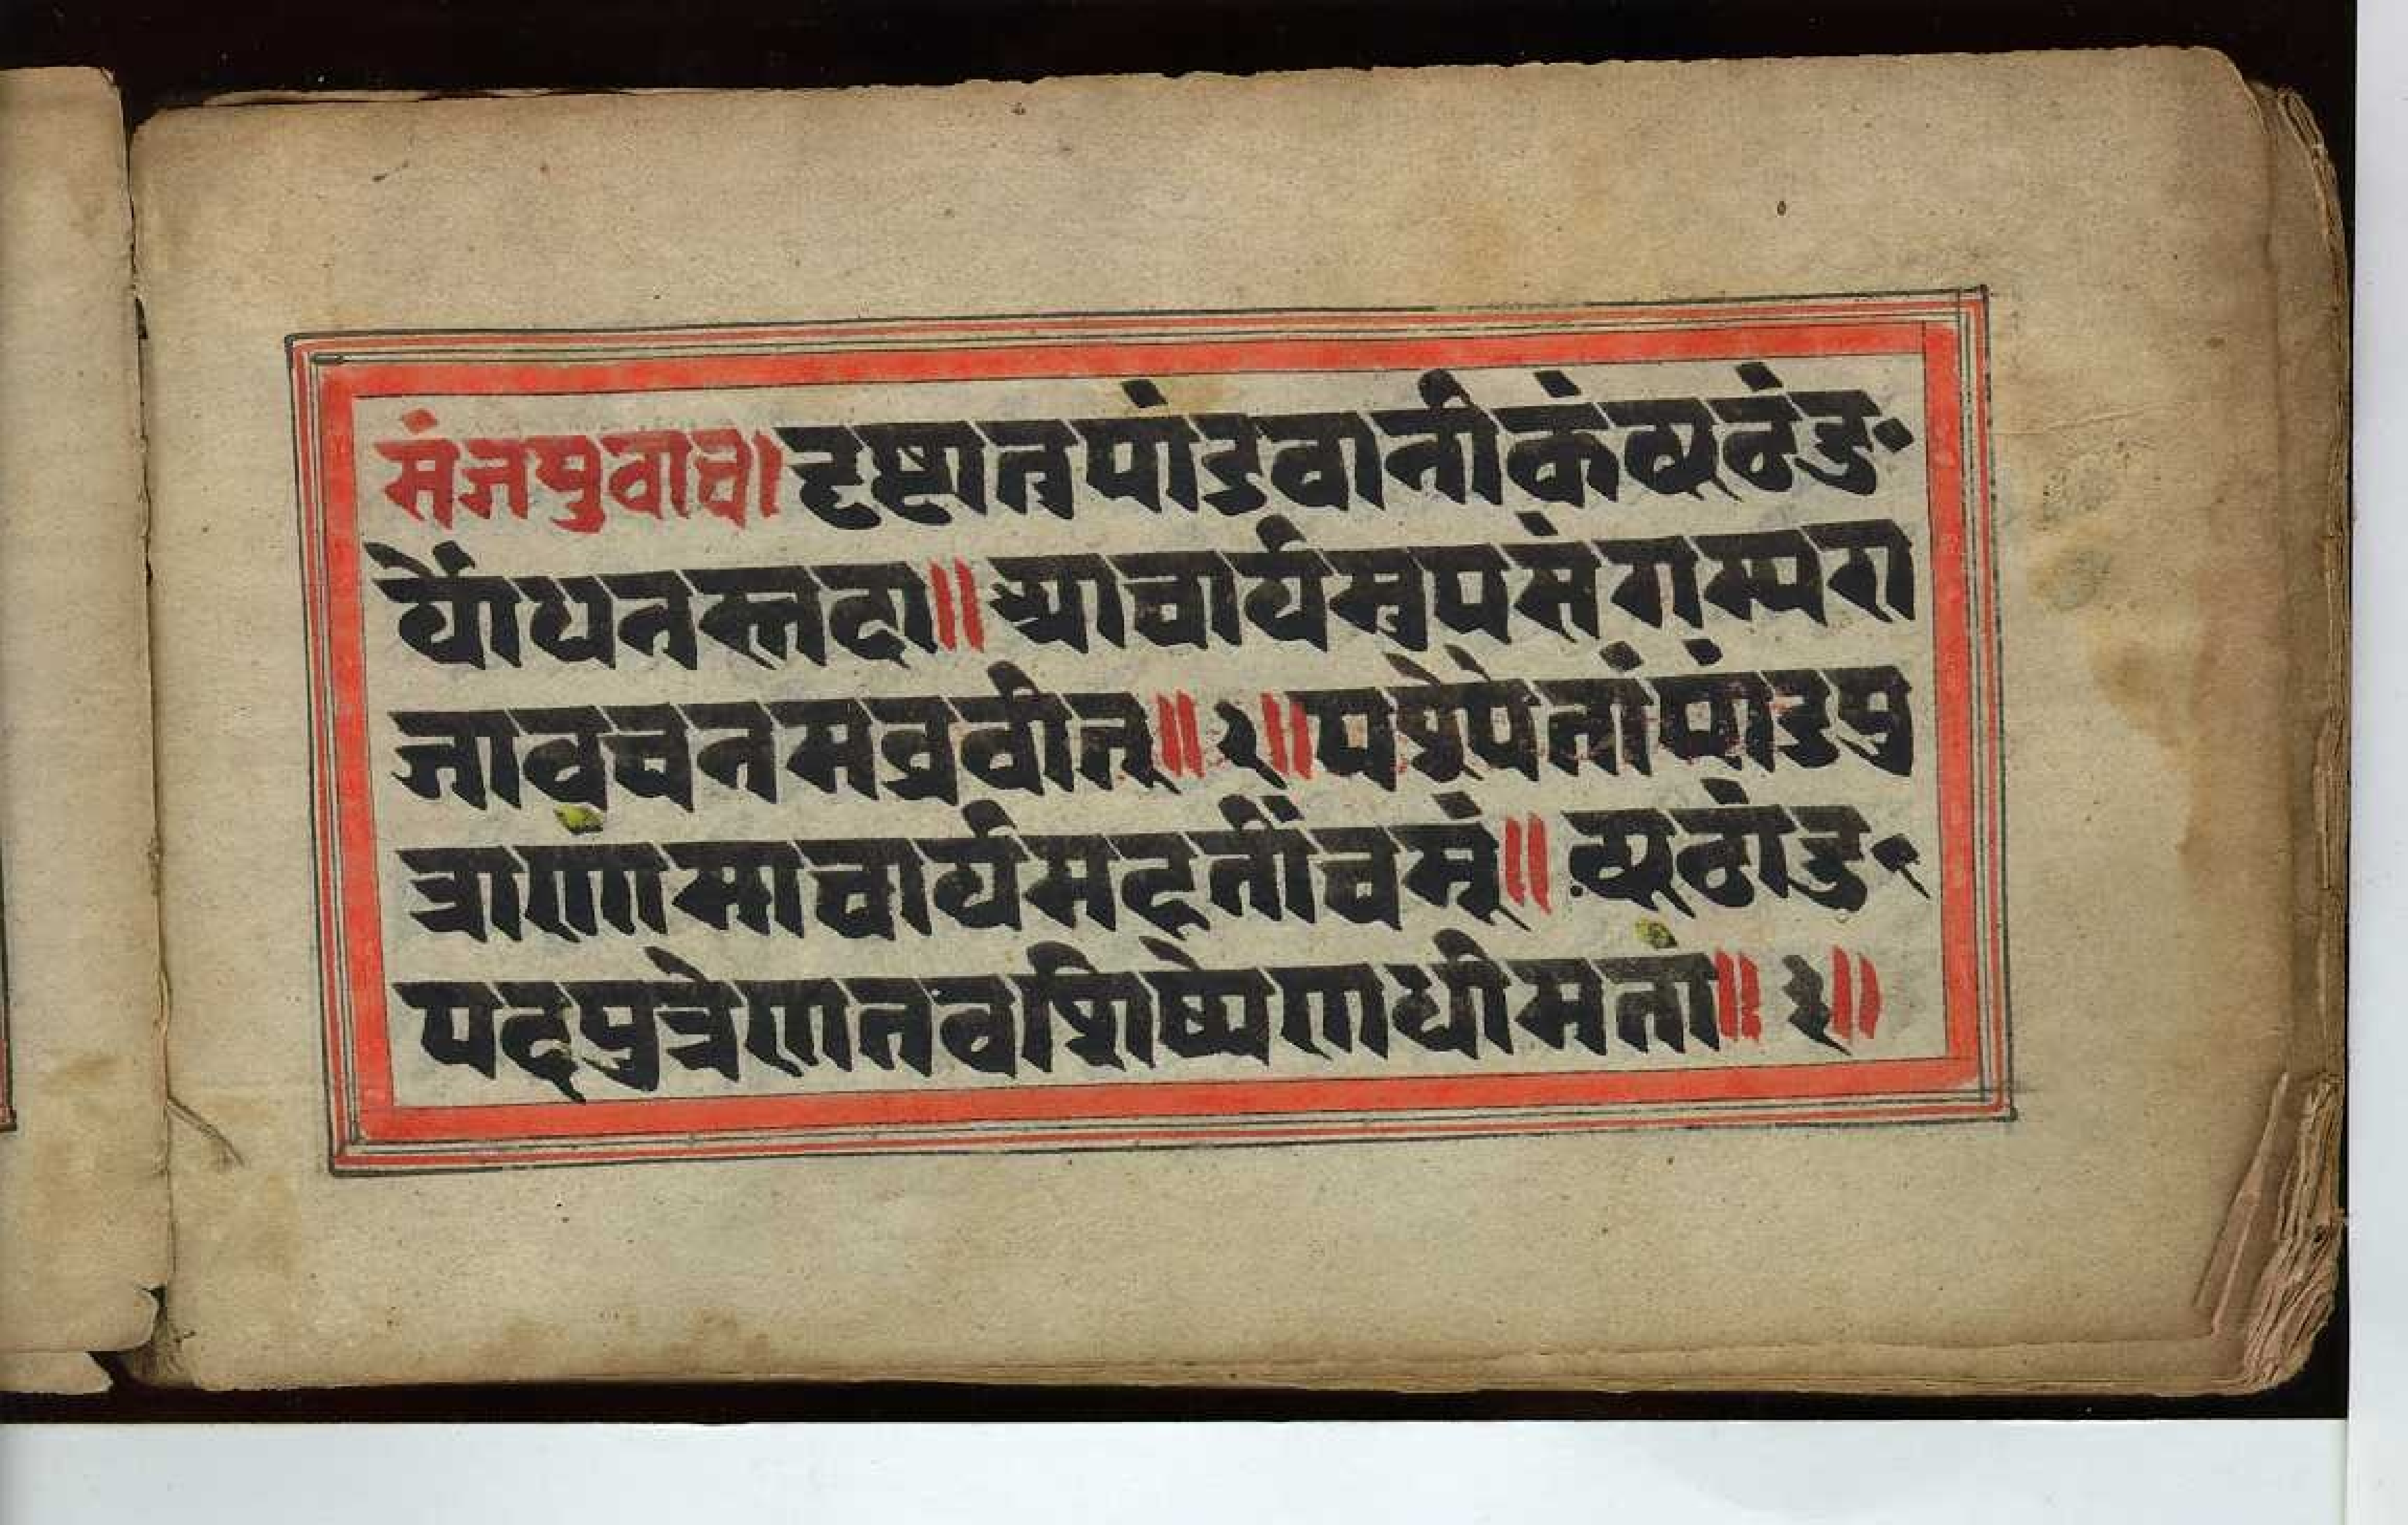 संजयुवाच। दृष्टातुपांडवानीकंव्यूठंडु
र्योंधनस्तदा॥ आचार्यमुपसंगम्यरा
जावचनमब्रवीत्॥२॥पश्येपेतांपांडुपु
त्राणांमाचार्यमहतींचमूं॥ व्यूठांडु
पदपुत्रेणतवशिष्येणधीमता॥३॥